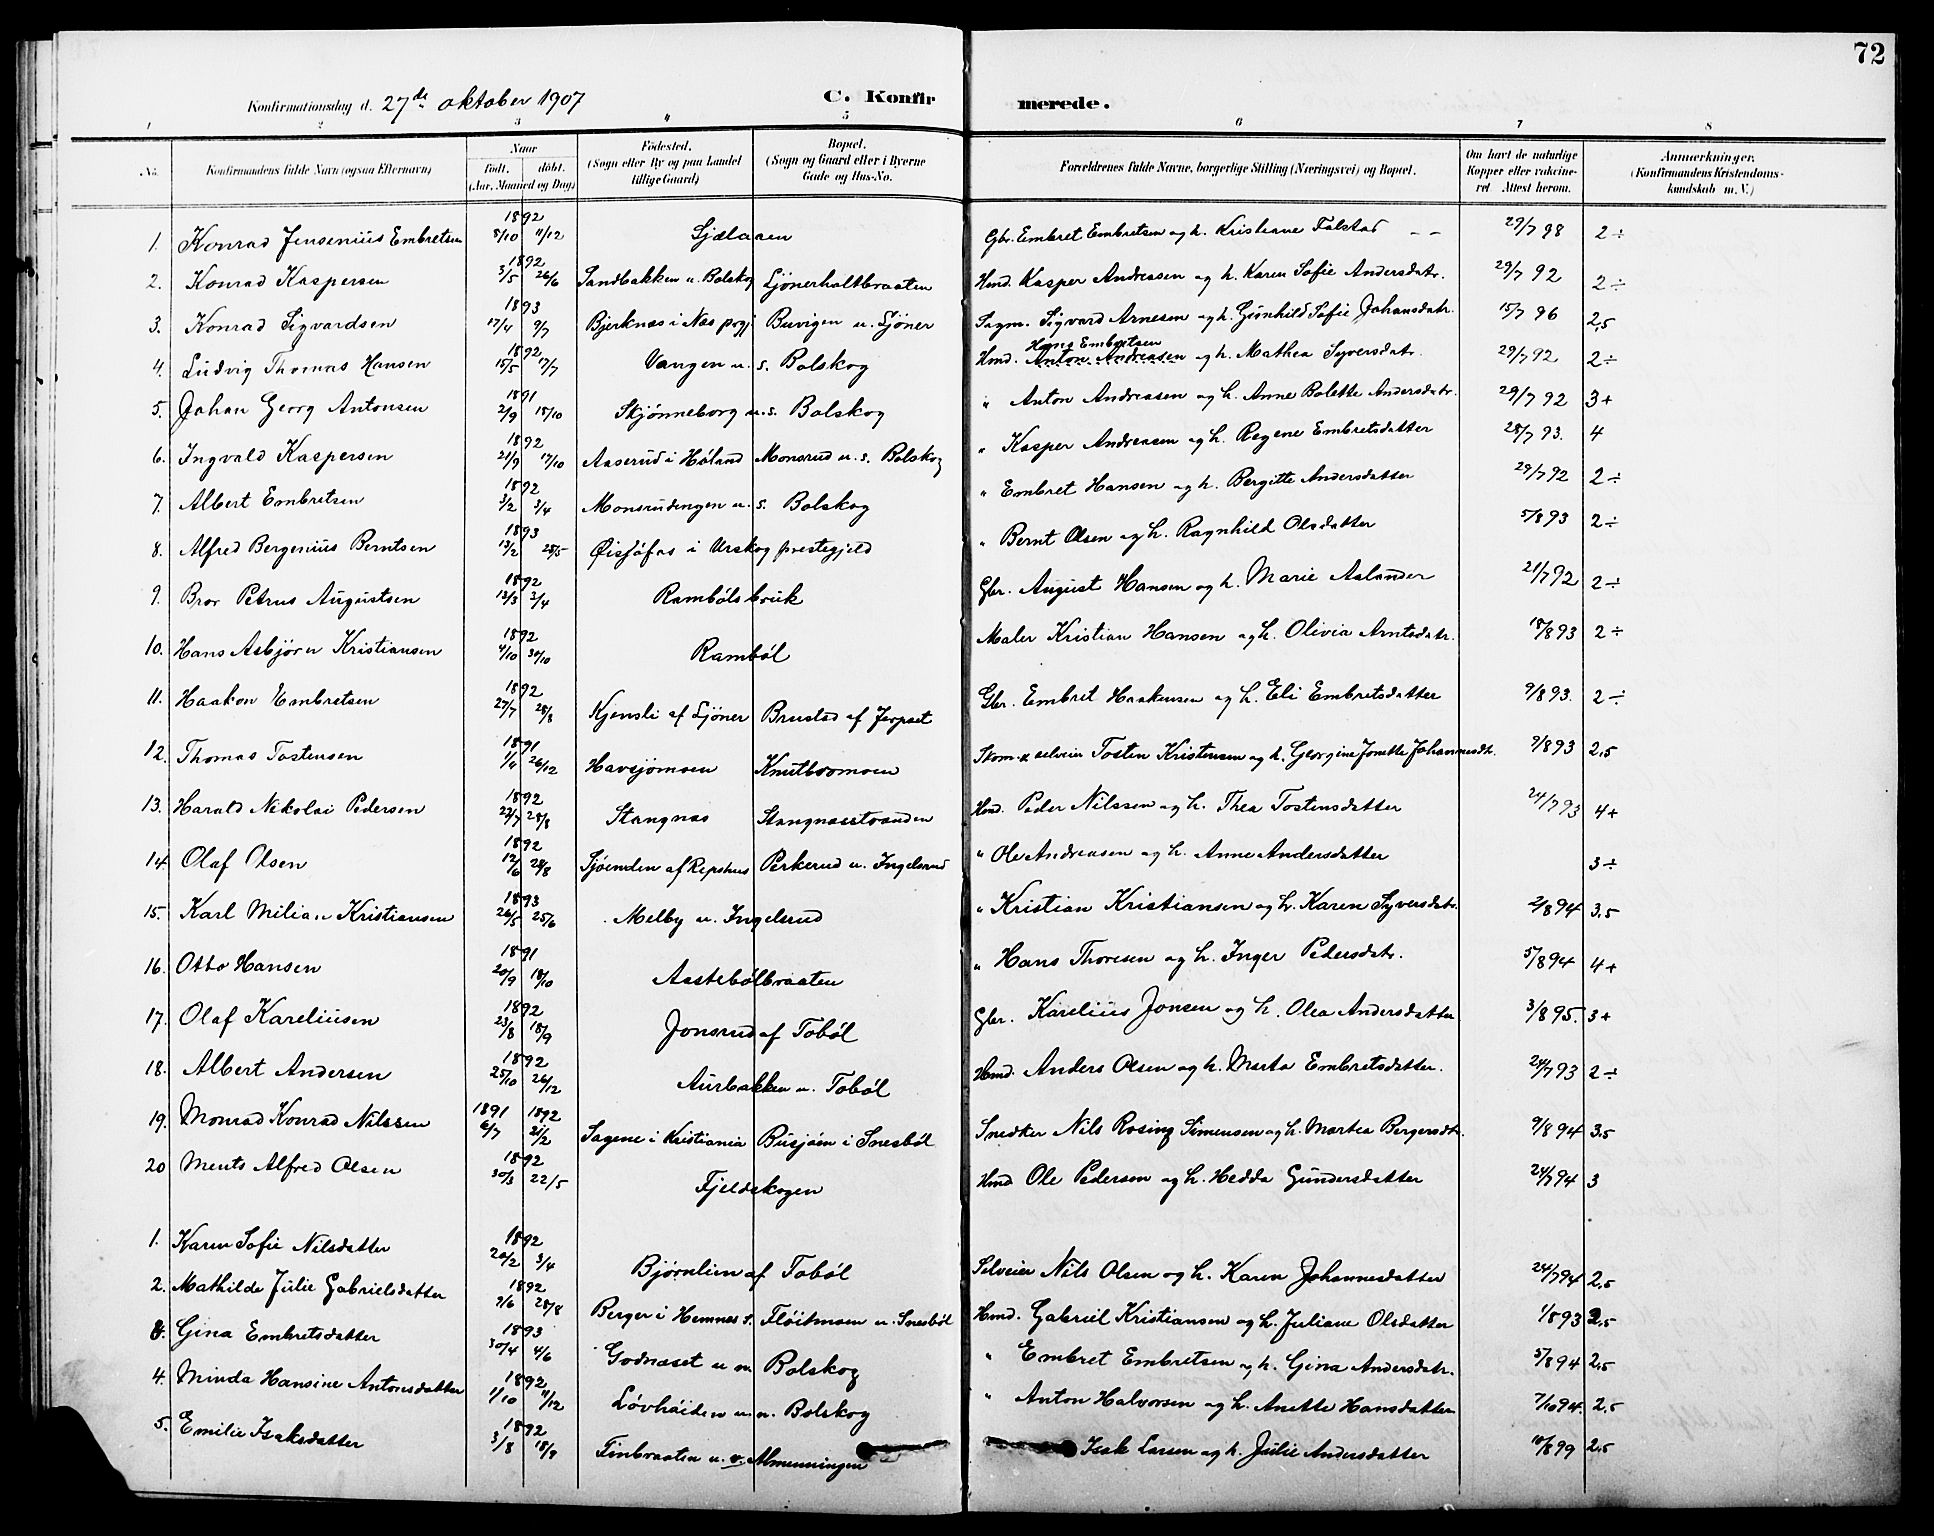 72
Konfirmationsdag d. 27de oktober 1907 C. Konfirmerede.
1 2 3 4 5 6 7 8
No. Konfirmandens fulde Navn (ogsaa Efternavn) Naar født. døbt. (Aar, Maaned og Dag) Fødested. (Sogn eller By og paa Landet tillige Gaard) Bopæl. (Sogn og Gaard eller i Byerne Gade og Hus-No. Forældrenes fulde Navne, borgerlige Stilling (Næringsvei) og Bopæl. Om havt de naturlige Kopper eller vakcineret. Attest herom. Anmærkninger. (Konfirmandens Kristendomskundskab m. V.)
1. Konrad Jensenius Embretsen 1892 8/10 11/12 Gbr. Embret Embretsen og h. Kristiane Falstad 29/7 98 2÷
2. Konrad Kaspersen 1892 3/5 26/6 Sandbakken u. Bolskog Ljønerholtbraaten Hmd. Kasper Andreasen og h. Karen Sofie Andersdatr. 29/7 92 2÷
3. Konrad Sigvardsen 1893 17/4 9/7 Bjerknæs i Næs prgj. Buvigen u. Ljøner Sagm. Sigvard Arnesen og h. Gunhild Sofie Johansdatr. 15/7 96 2,5
4. Ludvig Thomas Hansen 1892 15/5 17/7 Vangen u. s. Bolskog Hmd. Anton Andreasen Hans Embretsen og h. Mathea Syversdatr. 29/7 92 2÷
5. Johan Georg Antonsen 1891 2/9 18/10 Skjønneborg u. s. Bolskog " Anton Andreasen og h. Anne Bolette Andersdatr. 29/7 92 3+
6. Ingvald Kaspersen 1892 21/9 17/10 Aaserud i Høland Monsrud u. s. Bolskog " Kasper Andreasen og h. Regene Embretsdatter 28/7 93. 4
7. Albert Embretsen 1892 3/2 3/4 Monsrudengen u. s. Bolskog " Embret Hansen og h. Bergitte Andersdatter 29/7 92 2÷
8. Alfred Bergenius Berntsen 1893 13/2 28/5 i Urskog prestegjeld " Bernt Olsen og h. Ragnhild Olsdatter 5/8 93 2÷
9. Bror Petrus Augustsen 1892 13/3 3/4 Rambølsbruk Gbr. August Hansen og h. Marie Aslander 21/7 92 2÷
10. Hans Asbjørn Kristiansen 1892 4/10 30/10 Rambøl Maler Kristian Hansen og h. Olivia Arntsdatr. 18/8 93 2÷
11. Haakon Embretsen 1892 27/7 28/8 Kjensli af Ljøner Brustad af Jerpset Gbr. Embret Haakensen og h. Eli Embretsdatter 9/8 93. 2÷
12. Thomas Tostensen 1891 1/4 26/12 Havsjømoen Knutbromoen Skom. & selveier Tosten Kristensen og h. Georgine Jonette Johannesdt. 9/8 93 2,5
13. Harald Nikolai Pedersen 1892 22/7 28/8 Stangnæs Stangnæsstranden Hmd. Peder Nilssen og h. Thea Tostensdatter 24/7 93 4+
14. Olaf Olsen 1892 12/6 28/8 Sjøenden af Repshus Perkerud u. Ingelsrud " Ole Andreasen og h. Anne Andersdatter 3÷
15. Karl Milian Kristiansen 1893 26/5 25/6 Melby u. Ingelsrud " Kristian Kristiansen og h. Karen Syversdatr. 2/8 94 3,5
16. Otto Hansen 1891 20/9 18/10 Aastebølbraaten " Hans Thoresen og h. Inger Pedersdatr. 5/8 94 4+
17. Olaf Kareliusen 1892 23/8 18/9 Jonsrud af Tobøl Gbr. Karelius Jonsen og h. Olea Andersdatter 3/8 95. 3+
18. Albert Andersen 1892 25/10 26/12 Aurbakken u. Tobøl Hmd. Anders Olsen og h. Marta Embretsdatter. 24/7 93 2÷
19. Monrad Konrad Nilssen 1891 6/7 1892 21/2 Sagene i Kristiania Busjøen i Snesbøl Snedker Nils Rosing Simensen og h. Martea Bergersdt. 9/8 94 3,5
20 Ments Alfred Olsen 1892 30/3 22/5 Fjeldskogen Hmd Ole Pedersen og h. Hedda Gundersdatter 24/7 94 3
1. Karen Sofie Nilsdatter 1892 20/2 3/4 Bjørnlien af Tobøl Selveier Nils Olsen og h. Karen Johannesdatter 24/7 94 2,5
2. Mathilde Julie Gabrielsdatter 1892 9/6 28/8 Berger i Hemnes s. Fløitmoen u. Snesbøl Hmd. Gabriel Kristiansen og h. Juliane Olsdatter 1/8 93 2,5
3. Gina Embretsdatter 1893 30/4 4/6 Godnæset u. n. Bolskog " Embret Embretsen og h. Gina Andersdatr. 5/8 94 2,5
4. Minda Hansine Antonsdatter 1892 1/10 11/12 Løvhøiden u. n. Bolskog " Anton Halvorsen og h. Anette Hansdatter 7/10 94. 2,5
5. Emilie Isaksdatter 1892 3/8 18/9 Finbraaten u. v. Almenningen Isak Larsen og h. Julie Andersdatter 10/8 99 2,5